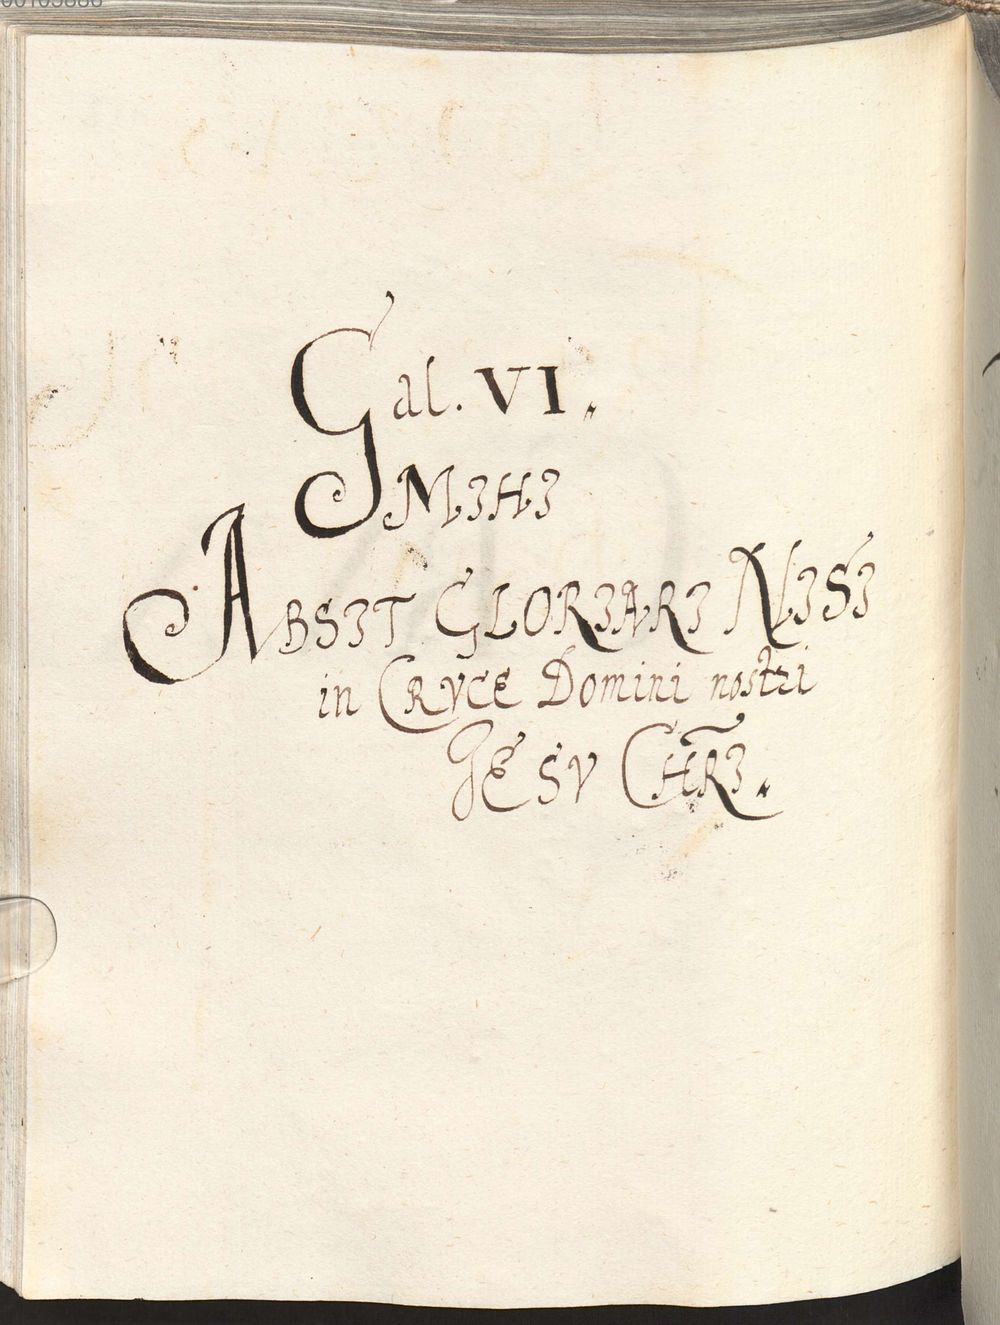 Gal. VI.
MIHI
ABSIT GLORIARI NISI
in CRVCE Domini nostri
JESV CHRI.